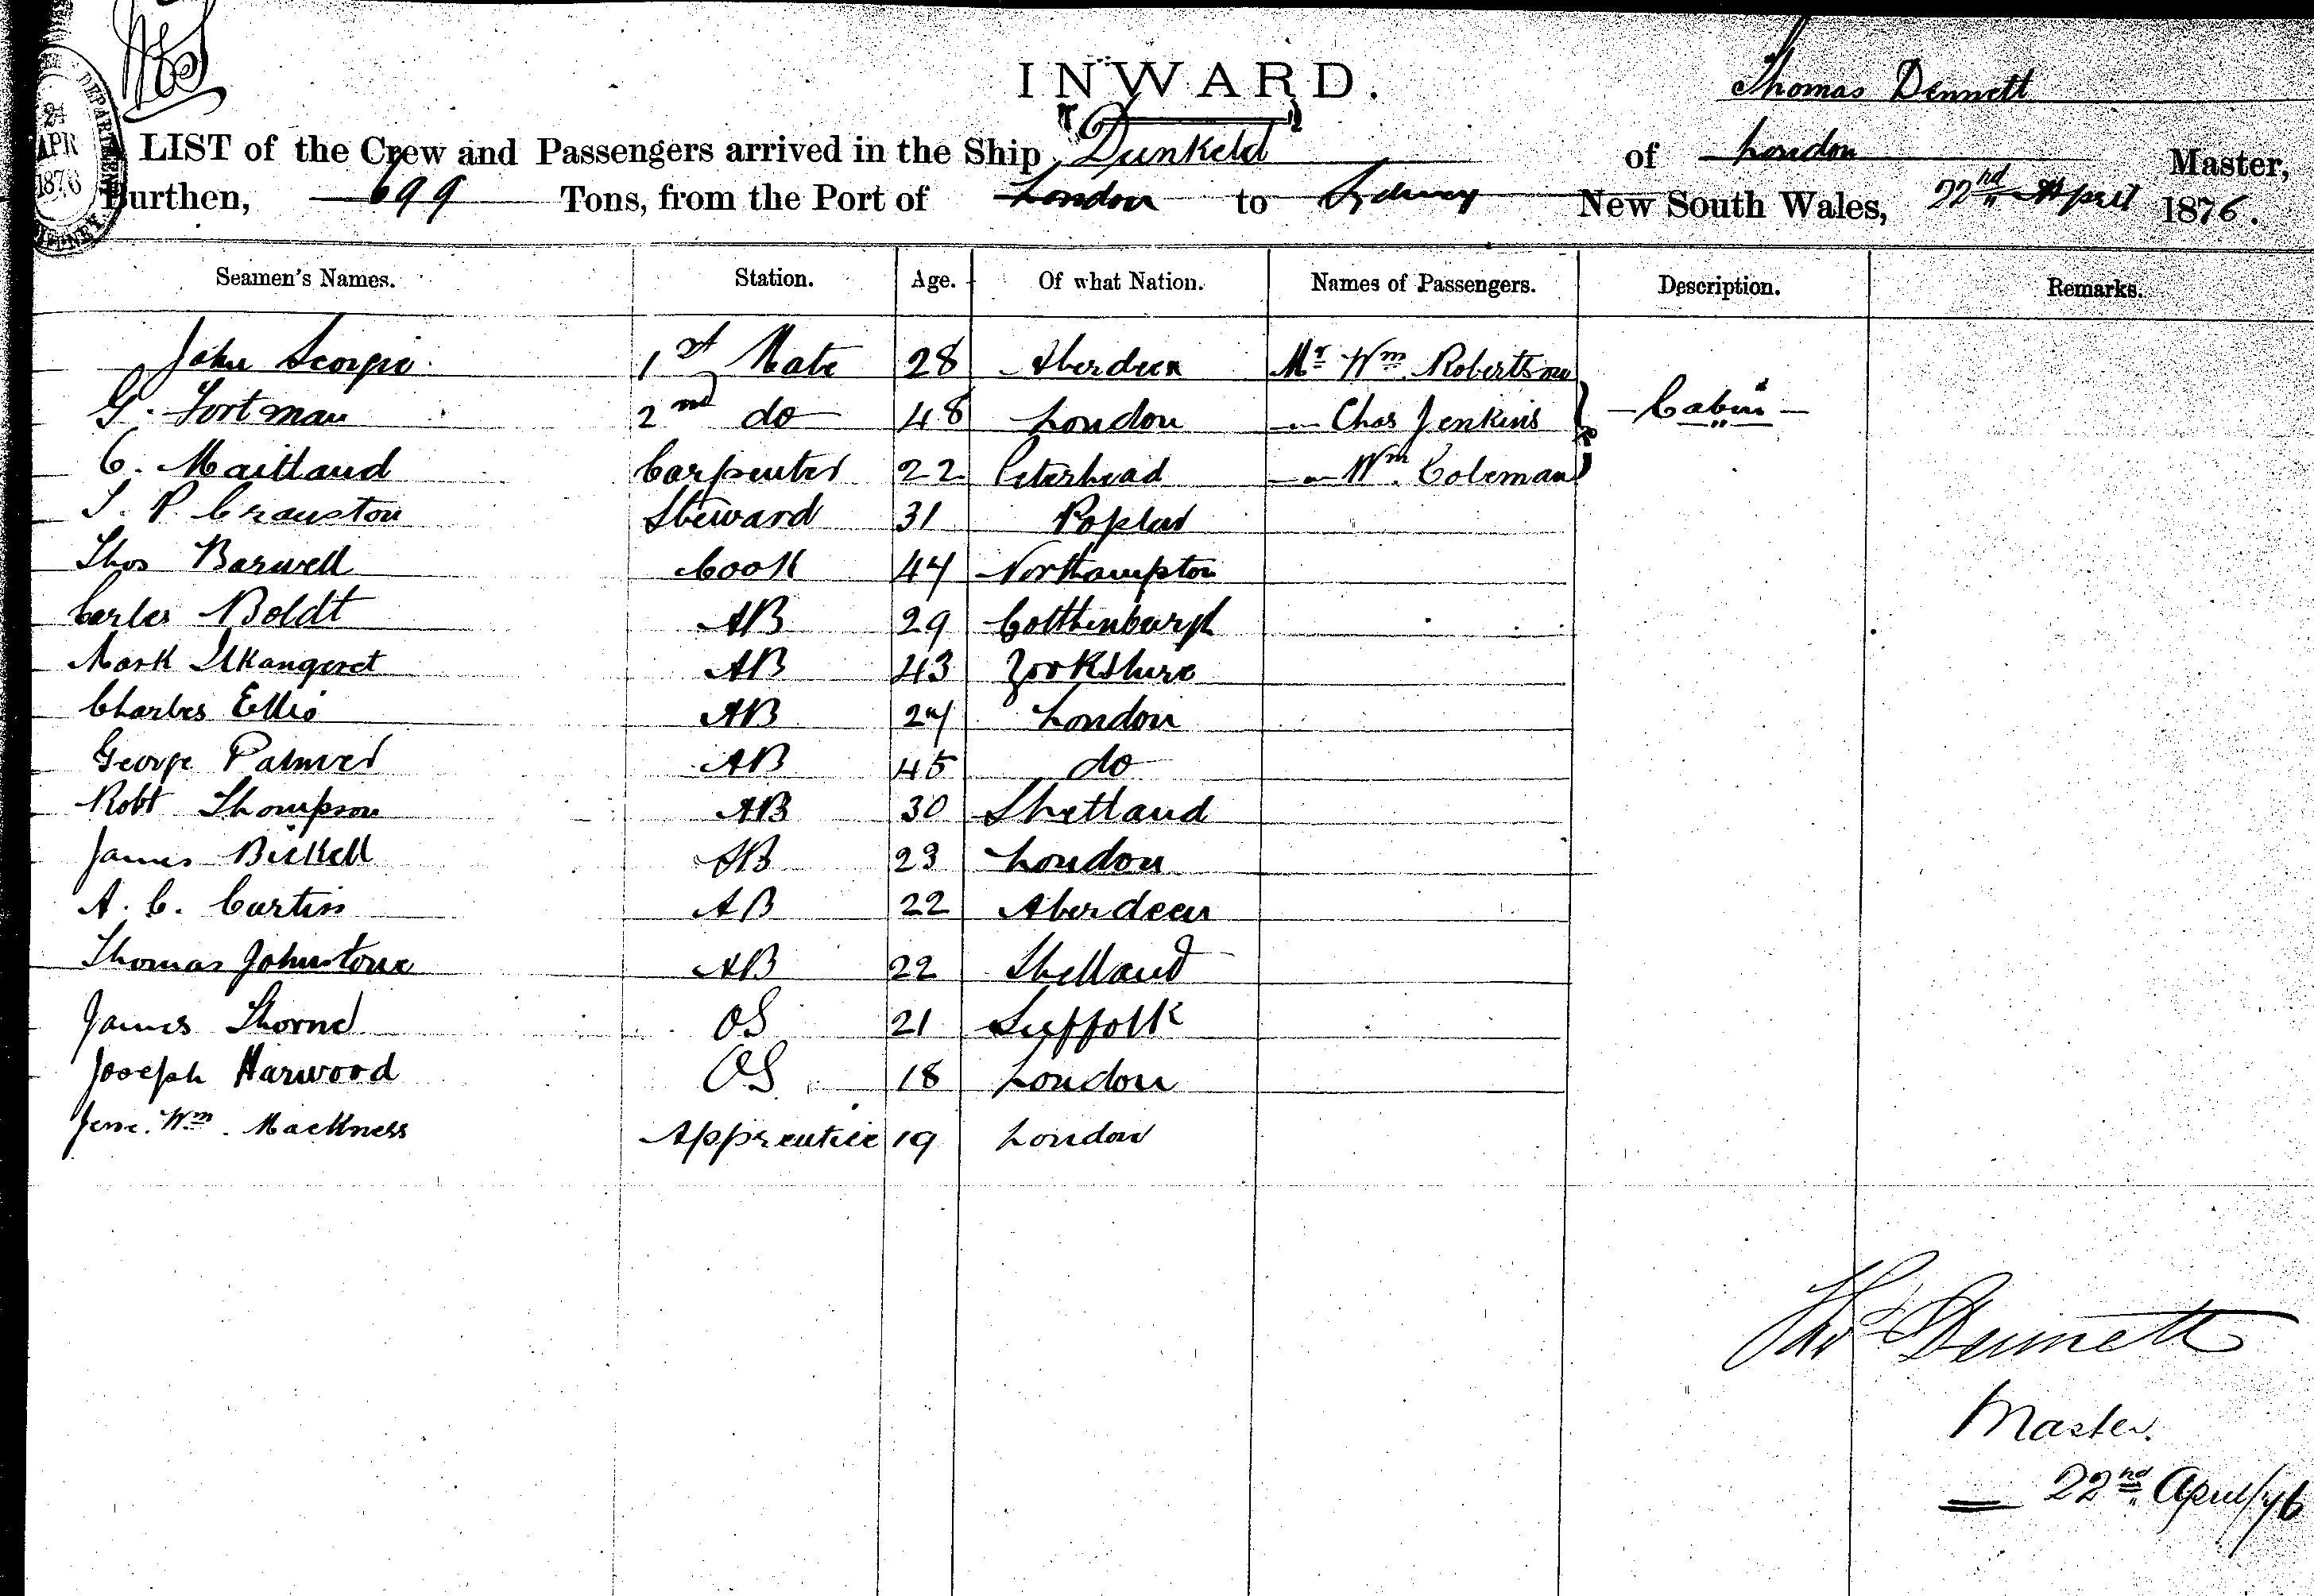 INWARD.
Thomas Dennett
LIST of the Crew and Passengers arrived in the Ship "Dunkeld" of London Master,
Burthen, 699 Tons, from the Port of London to Sydney New South Wales, 22nd April 1876.
24 APR 1876
Seamen's Names. Station. Age. Of what Nation. Names of Passengers. Description. Remarks.
John Scorgie 1st Mate 28 Aberdeen Mr Wm Robertson
G. Fortman 2nd do 48 London " Chas Jenkins Cabin
C. Maitland Carpenter 22 Peterhead " Wm Coleman
T. P. Cranston Steward 31 Poplar
Thos Barwell Cook 44 Northampton
Carles Boldt AB 29 Gotthenburgh
Mark AB 43 Yorkshire
Charles Ellis AB 24 London
George Palmer AB 45 do
Robt Thompson AB 30 Shetland
James Bickell AB 23 London
A. C. Curtis AB 22 Aberdeen
Thomas Johnstone AB 22 Shetland
James Thorne OS 21 Suffolk
Joseph Harwood OS 18 London
Wm. Mackness Apprentice 19 London
Thos Dennett
Master.
22nd April/76